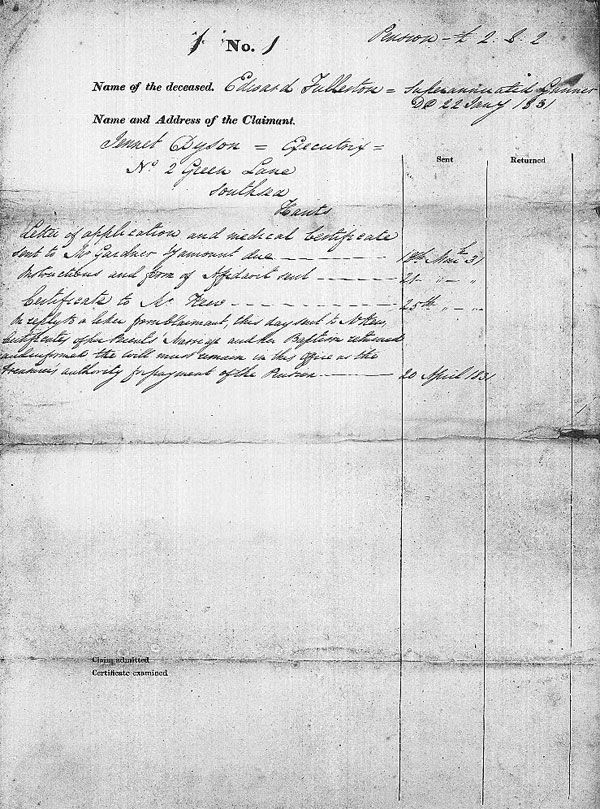 No. 1
Pension - £ 2. 8. 2
Name of the deceased. Edward Fullerton = Superannuated Gunner
DD 22 Jany 1831
Name and Address of the Claimant.
Jennet Dyson = Executrix =
No 2 Green Lane
Southsea
Hants
Sent
Returned
Letter of application and medical Certificate
sent to Mr Gardner for amount due 19th March 31
Instructions and form of Affidavit sent 21 " - "
Certificate to Mr 25th " - "
In reply to a letter from Claimant, this day sent to
Certificates of her Parents' Marriage and her Baptism returned
and informed the Will must remain in this Office as the
Treasurers authority for payment of the Pension 20 April 1831
Claim admitted
Certificate examined